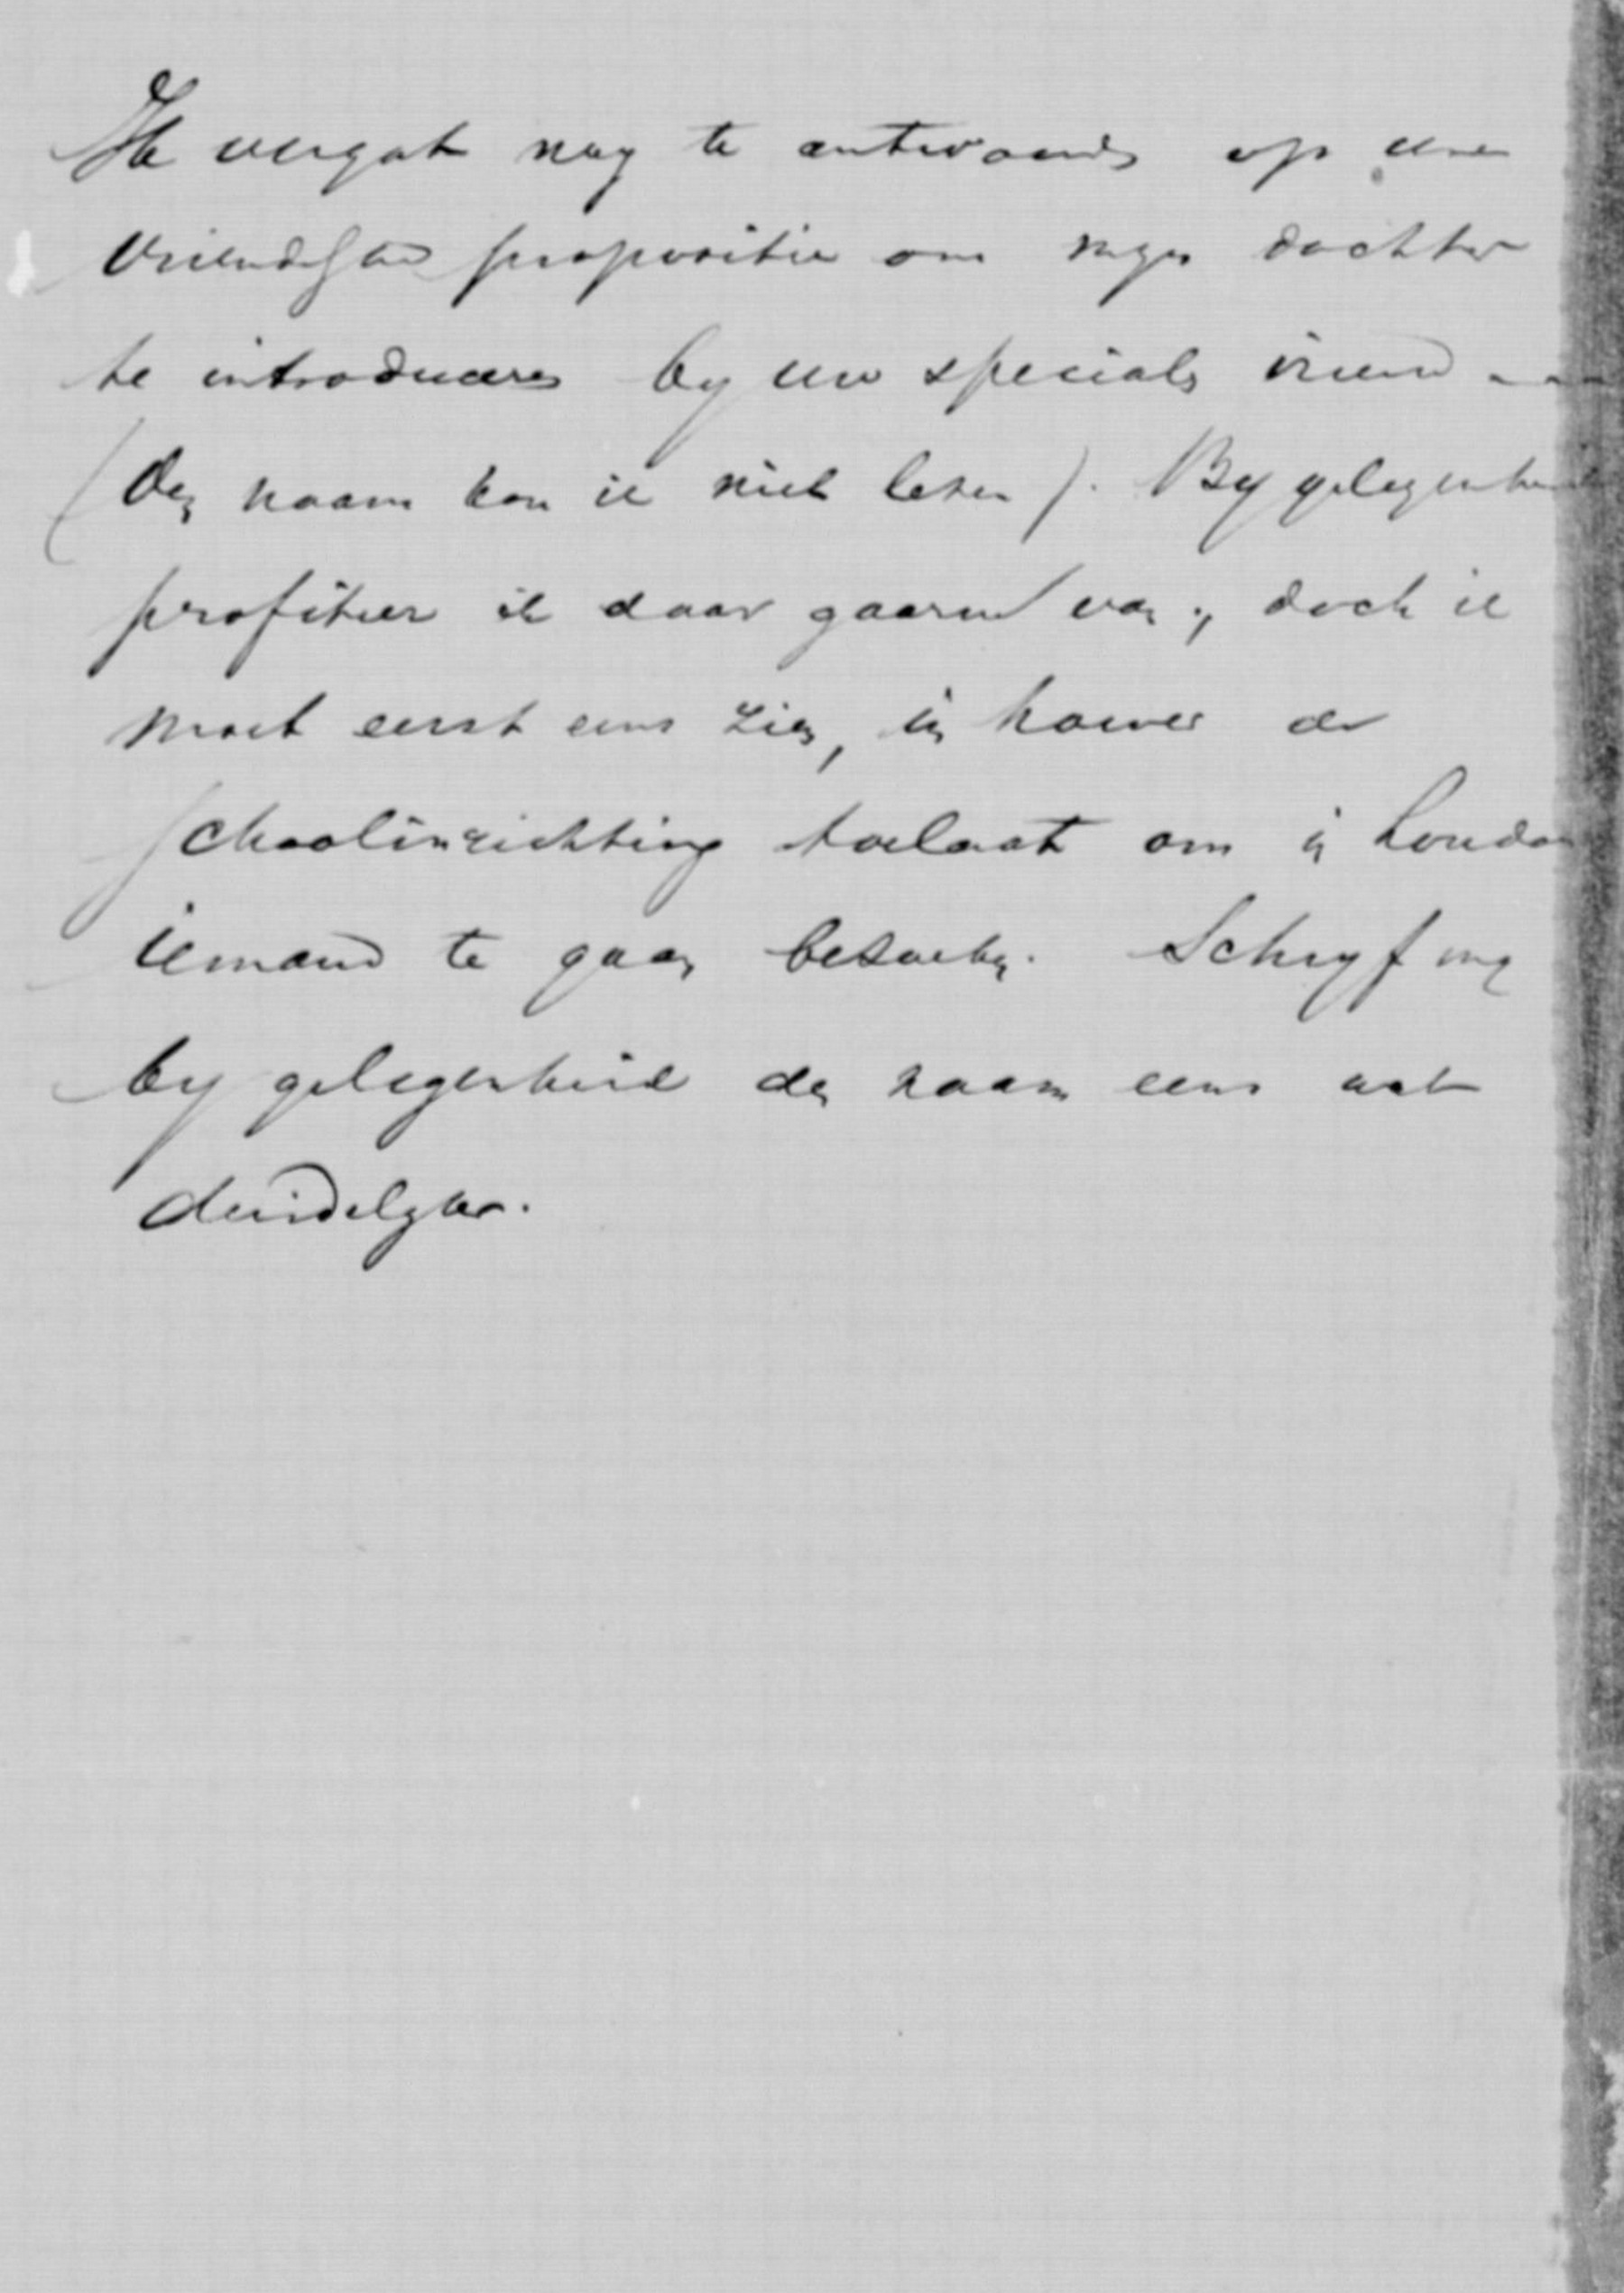 Ik vergat nog te antwoorden op uw
vriendelyke propositie om myn dochter
te introduceren by uw speciale vriend
(den naam kon ik niet lezen). By gelegenheid
profiteer ik daar gaarne van; doch ik
moet eerst eens zien, in hoever de
schoolinrichting toelaat om in London
iemand te gaan bezoeken. Schryf my
by gelegenheid den naam eens wat
duidelyker.